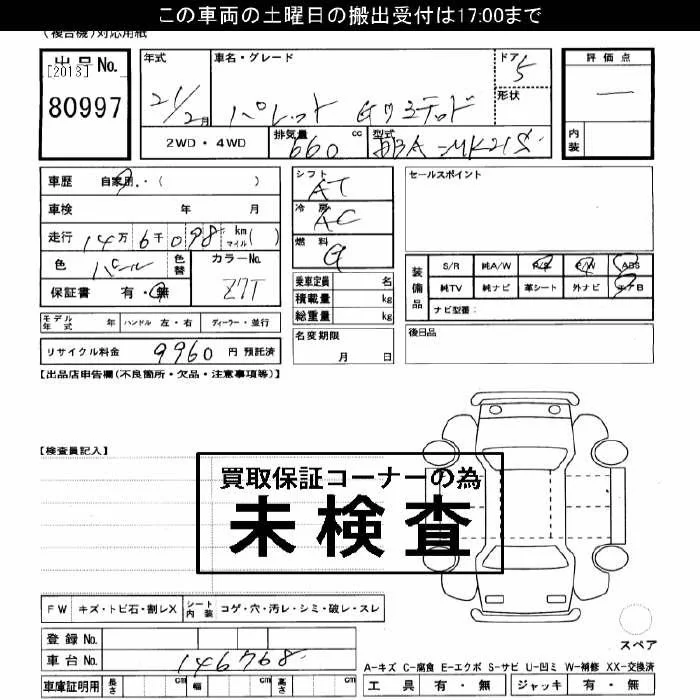 この車両の土曜日の搬出受付は17:00まで
(複合機)対応用紙
出品No.
[2013]
80997
年式 車名・グレード ドア 5
形状
21/2月 パレット リミテッド
2WD・4WD 排気量 660 cc 型式 DBA-MK21S
評価点
―
内装
車歴 自家用・( )
車検 年 月
走行 14万 6千 098 km マイル( )
色 パール 色替 カラーNo.
保証書 有・無 Z7T
シフト AT
冷房 AC
燃料 G
乗車定員 名
積載量 kg
総重量 kg
セールスポイント
装備品 S/R 純A/W P/S P/W ABS
純TV 純ナビ 革シート 外ナビ エアB
ナビ型番:
モデル年式 年 ハンドル 左・右 ディーラー・並行
名変期限
月 日
後日品
リサイクル料金 9960 円 預託済
【出品店申告欄(不良箇所・欠品・注意事項等)】
【検査員記入】
買取保証コーナーの為
未検査
FW キズ・トビ石・割レX シート内装 コゲ・穴・汚レ・シミ・破レ・スレ
登録No.
車台No. 146768
スペア
A-キズ C-腐食 E-エクボ S-サビ U-凹ミ W-補修 XX-交換済
車庫証明用 長さ cm 幅 cm 高さ cm
工具 有・無 ジャッキ 有・無